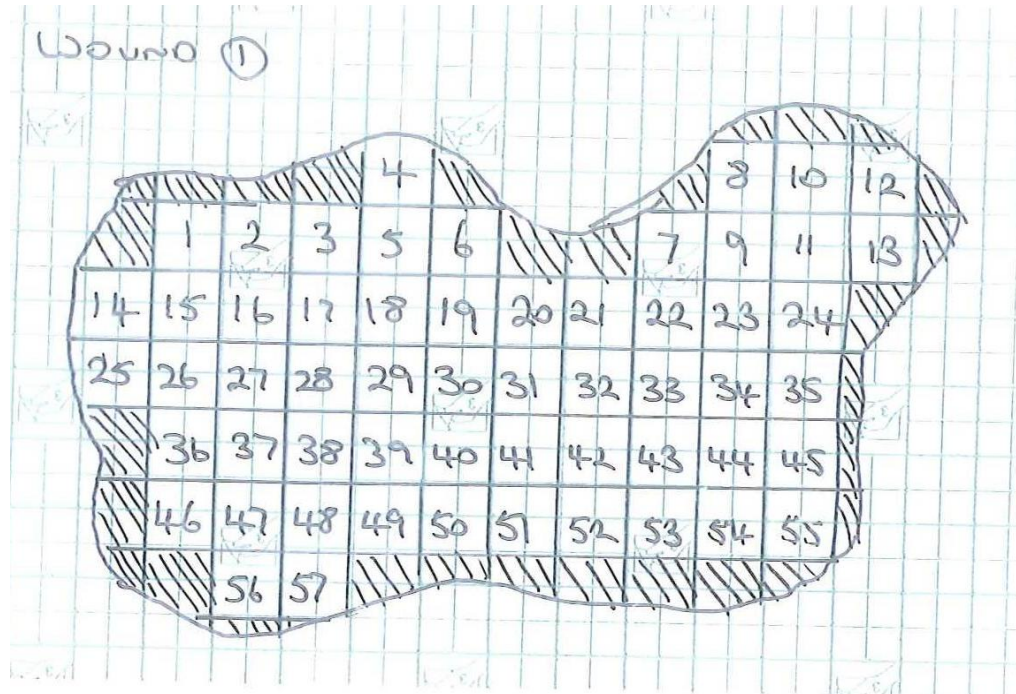 WOUND ①
4 8 10 12
1 2 3 5 6 7 9 11 13
14 15 16 17 18 19 20 21 22 23 24
25 26 27 28 29 30 31 32 33 34 35
36 37 38 39 40 41 42 43 44 45
46 47 48 49 50 51 52 53 54 55
56 57